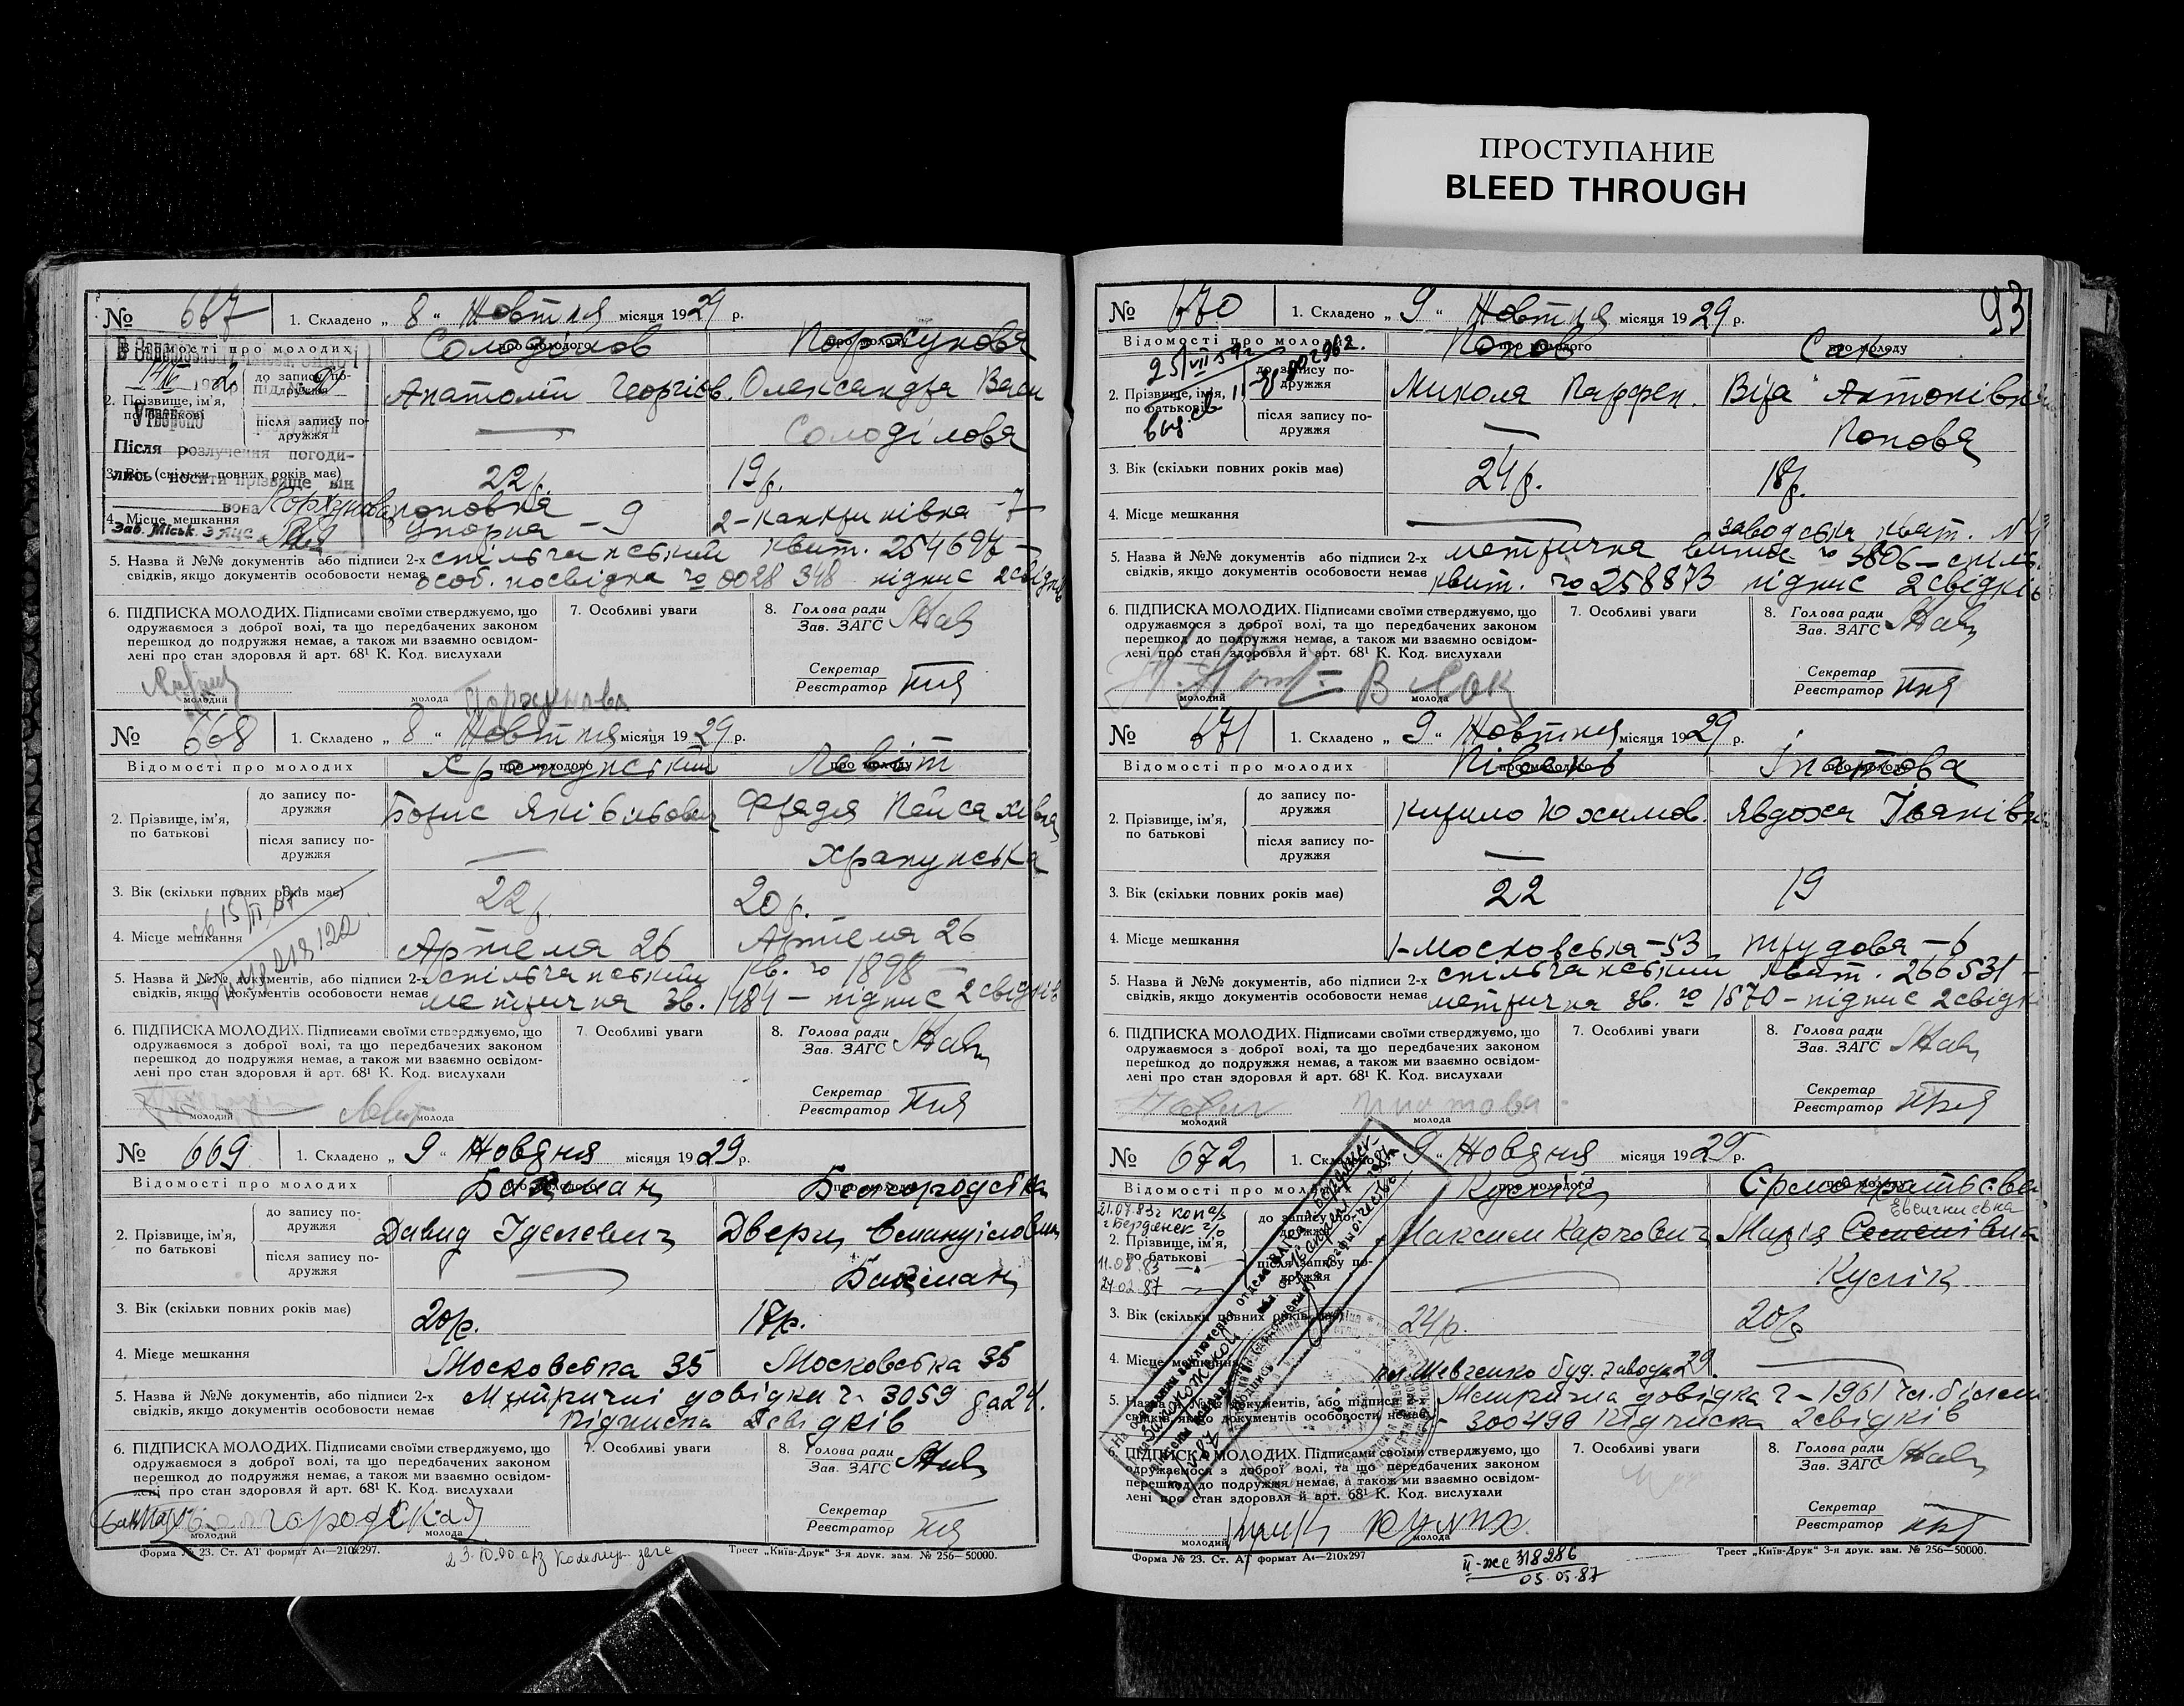 ПРОСТУПАНИЕ
BLEED THROUGH
№ 667 1. Складено „ 8 “ Жовтня місяця 1929 р.
Відомості про молодих про молодого Солоділов про молоду Поржунова
2. Прізвище, ім'я, по батькові
до запису подружжя Анатолій Георгієв. Олександра Васи
після запису по-дружжя — Солоділова
Утворено
Після розлучення погоди-
лись носити прізвище він
вона Поржунова
Зав. Міськ. ЗАГС
3. Вік (скільки повних років має) 22 р. 19 р.
4. Місце мешкання Упорна – 9 2-Канкринівка – 7
5. Назва й №№ документів або підписи 2-х свідків, якщо документів особовости немає спільчанський квит. 254697 –
особ. посвідка № 0028348 підпис 2 свідків
6. ПІДПИСКА МОЛОДИХ. Підписами своїми стверджуємо, що
одружаємося з доброї волі, та що передбачених законом
перешкод до подружжя немає, а також ми взаємно освідом-
лені про стан здоровля й арт. 68¹ К. Код. вислухали
7. Особливі уваги
8. Голова ради
Зав. ЗАГС
Секретар
Реєстратор
молодий молода Поржунова
№ 668 1. Складено „ 8 “ Жовтня місяця 1929 р.
Відомості про молодих про молодого Храпунський про молоду Левіт
2. Прізвище, ім'я, по батькові
до запису по-дружжя Борис Яківльович Фрадя Пейсахівна
після запису по-дружжя — Храпунська
3. Вік (скільки повних років має) 22 р. 20 р.
4. Місце мешкання Артема 26 Артема 26
5. Назва й №№ документів, або підписи 2-х свідків, якщо документів особовости немає спільчанський кв. № 1898 –
метрична зв. 1484 – підпис 2 свідків
6. ПІДПИСКА МОЛОДИХ. Підписами своїми стверджуємо, що
одружаємося з доброї волі, та що передбачених законом
перешкод до подружжя немає, а також ми взаємно освідом-
лені про стан здоровля й арт. 68¹ К. Код. вислухали
7. Особливі уваги
8. Голова ради
Зав. ЗАГС
Секретар
Реєстратор
молодий молода
№ 669 1. Складено „ 9 “ Жовдня місяця 1929 р.
Відомості про молодих Бакман Белгородська
2. Прізвище, ім'я, по батькові
до запису по-дружжя Давид Іделевич Двера Емануіловна
після запису по-дружжя — Бакман
3. Вік (скільки повних років має) 20 р. 18 р.
4. Місце мешкання Московська 35 Московська 35
5. Назва й №№ документів, або підписи 2-х свідків, якщо документів особовости немає Метричні довідки ч. 3059 да 24.
Підписка 2 свідків
6. ПІДПИСКА МОЛОДИХ. Підписами своїми стверджуємо, що
одружаємося з доброї волі, та що передбачених законом
перешкод до подружжя немає, а також ми взаємно освідом-
лені про стан здоровля й арт. 68¹ К. Код. вислухали
7. Особливі уваги
8. Голова ради
Зав. ЗАГС
Секретар
Реєстратор
молодий молода
Форма № 23. Ст. АТ формат А₄—210х297. Трест „Київ-Друк“ 3-я друк. зам. № 256—50000.
93
№ 670 1. Складено „ 9 “ Жовтня місяця 1929 р.
Відомості про молодих про молодого Попов про молоду
2. Прізвище, ім'я, по батькові
до запису по-дружжя Микола Парфен. Віра Антонівна
після запису по-дружжя — Попова
3. Вік (скільки повних років має) 24 р. 18 р.
4. Місце мешкання — заводська кват. №
5. Назва й №№ документів або підписи 2-х свідків, якщо документів особовости немає метрична випис № 3806 – спільч.
квит. № 258873 підпис 2 свідків
6. ПІДПИСКА МОЛОДИХ. Підписами своїми стверджуємо, що
одружаємося з доброї волі, та що передбачених законом
перешкод до подружжя немає, а також ми взаємно освідом-
лені про стан здоровля й арт. 68¹ К. Код. вислухали
7. Особливі уваги
8. Голова ради
Зав. ЗАГС
Секретар
Реєстратор
молодий молода
№ 671 1. Складено „ 9 “ Жовтня місяця 1929 р.
Відомості про молодих Ігнатова
2. Прізвище, ім'я, по батькові
до запису по-дружжя Кирило Юхимов. Явдоха Іванівна
після запису по-дружжя —
3. Вік (скільки повних років має) 22 19
4. Місце мешкання 1-Московська – 53 Трудова – 6
5. Назва й №№ документів, або підписи 2-х свідків, якщо документів особовости немає спільчанський квит. 266531 –
метрична зв. № 1870 – підпис 2 свідків
6. ПІДПИСКА МОЛОДИХ. Підписами своїми стверджуємо, що
одружаємося з доброї волі, та що передбачених законом
перешкод до подружжя немає, а також ми взаємно освідом-
лені про стан здоровля й арт. 68¹ К. Код. вислухали
7. Особливі уваги
8. Голова ради
Зав. ЗАГС
Секретар
Реєстратор
молодий молода
№ 672 1. Складено „ 9 “ Жовдня місяця 1929 р.
Відомості про молодих про молодого Кулік
Евгениевна
2. Прізвище, ім'я, по батькові
до запису по-дружжя Максим Карпович Марія Семенівна
після запису по-дружжя — Кулік
3. Вік (скільки повних років має) 24 р. 20 р.
4. Місце мешкання пл. Шевченко буд. завода 29. —
5. Назва й №№ документів, або підписи 2-х свідків, якщо документів особовости немає Метрична довідка ч – 1961
300499 Підписка 2 свідків
6. ПІДПИСКА МОЛОДИХ. Підписами своїми стверджуємо, що
одружаємося з доброї волі, та що передбачених законом
перешкод до подружжя немає, а також ми взаємно освідом-
лені про стан здоровля й арт. 68¹ К. Код. вислухали
7. Особливі уваги
8. Голова ради
Зав. ЗАГС
Секретар
Реєстратор
молодий молода
Форма № 23. Ст. АТ формат А₄—210х297 Трест „Київ-Друк“ 3-я друк. зам. № 256—50000.
II-жс 318286
05.05.87